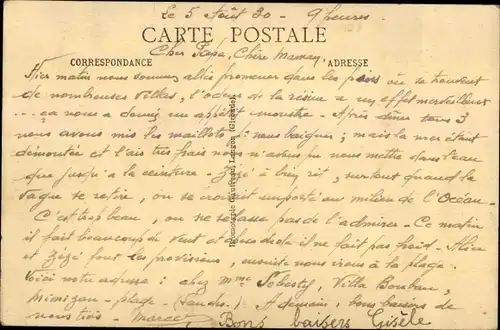 Le 5 Août 30 - 9 heures.
CARTE POSTALE
Cher Papa, Chère Maman,
CORRESPONDANCE
ADRESSE
Hier matin nous sommes allés promener dans les pins où se trouvent
de nombreuses villas, l'odeur de la résine a un effet merveilleux
... ça nous a donné un appétit monstre. Après dîner tous 3
nous avons mis les maillots, nous baigner; mais la mer étant
démontée et l'air très frais nous n'avons pu nous mettre dans l'eau
que jusqu'à la ceinture. Zizé a bien rit, surtout quand la
vague se retire, on se croirait emporté au milieu de l'Océan.
C'est trop beau, on ne se lasse pas de l'admirer. Ce matin
il fait beaucoup de vent et au dehors il ne fait pas froid. Alice
et Zizé font les provisions, ensuite nous irons à la plage.
Voici notre adresse: chez Mme Villa
Mimizan-plage (Landes). A demain, bons baisers de
nous trois. Marcel
Bons baisers Gisèle
(Gironde)